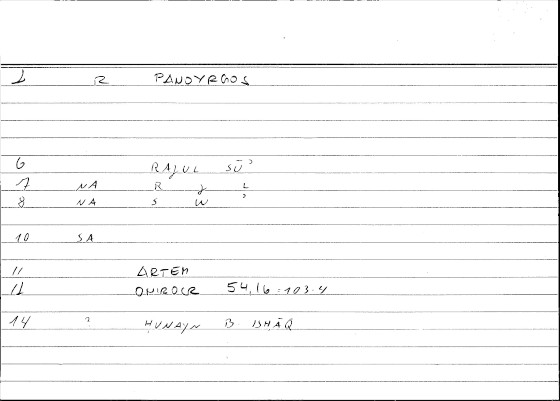 1 R PANOYRGOS
6 RAJUL SŪʾ
7 NA R J L
8 NA S W ʾ
10 SA
11 ARTEM
12 ONIROCR 54,16 = 103.4
14 ? HUNAYN B ISHĀQ